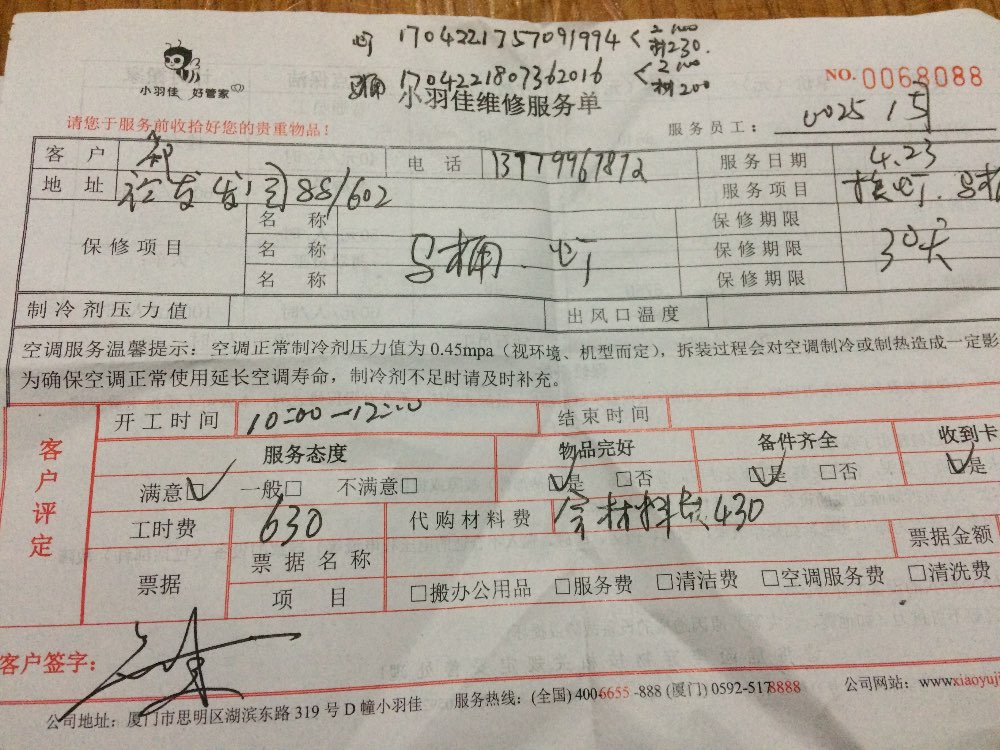 灯 1704221757091994 < 工100 材230.
马桶 1704221807362016 < 工100 材200
小羽佳 好管家
小羽佳维修服务单
NO. 0068088
请您于服务前收拾好您的贵重物品！
服务员工：0025
客户 电话 服务日期 4.23
地址 88/602 服务项目 换灯.马桶
保修项目 名称 马桶.灯 保修期限 30天
名称 保修期限
名称 保修期限
制冷剂压力值 出风口温度
空调服务温馨提示：空调正常制冷剂压力值为 0.45mpa（视环境、机型而定），拆装过程会对空调制冷或制热造成一定影
为确保空调正常使用延长空调寿命，制冷剂不足时请及时补充。
客户评定
开工时间 10:00—12:00 结束时间
服务态度 物品完好 备件齐全 收到卡
满意□ 一般□ 不满意□ □是 □否 □是 □否 □是
工时费 630 代购材料费 含材料款430
票据 票据名称 票据金额
项目 □搬办公用品 □服务费 □清洁费 □空调服务费 □清洗费
客户签字：
公司地址：厦门市思明区湖滨东路 319 号 D 幢小羽佳 服务热线：(全国) 400-6655-888 (厦门) 0592-5178888 公司网站：www.xiaoyuji